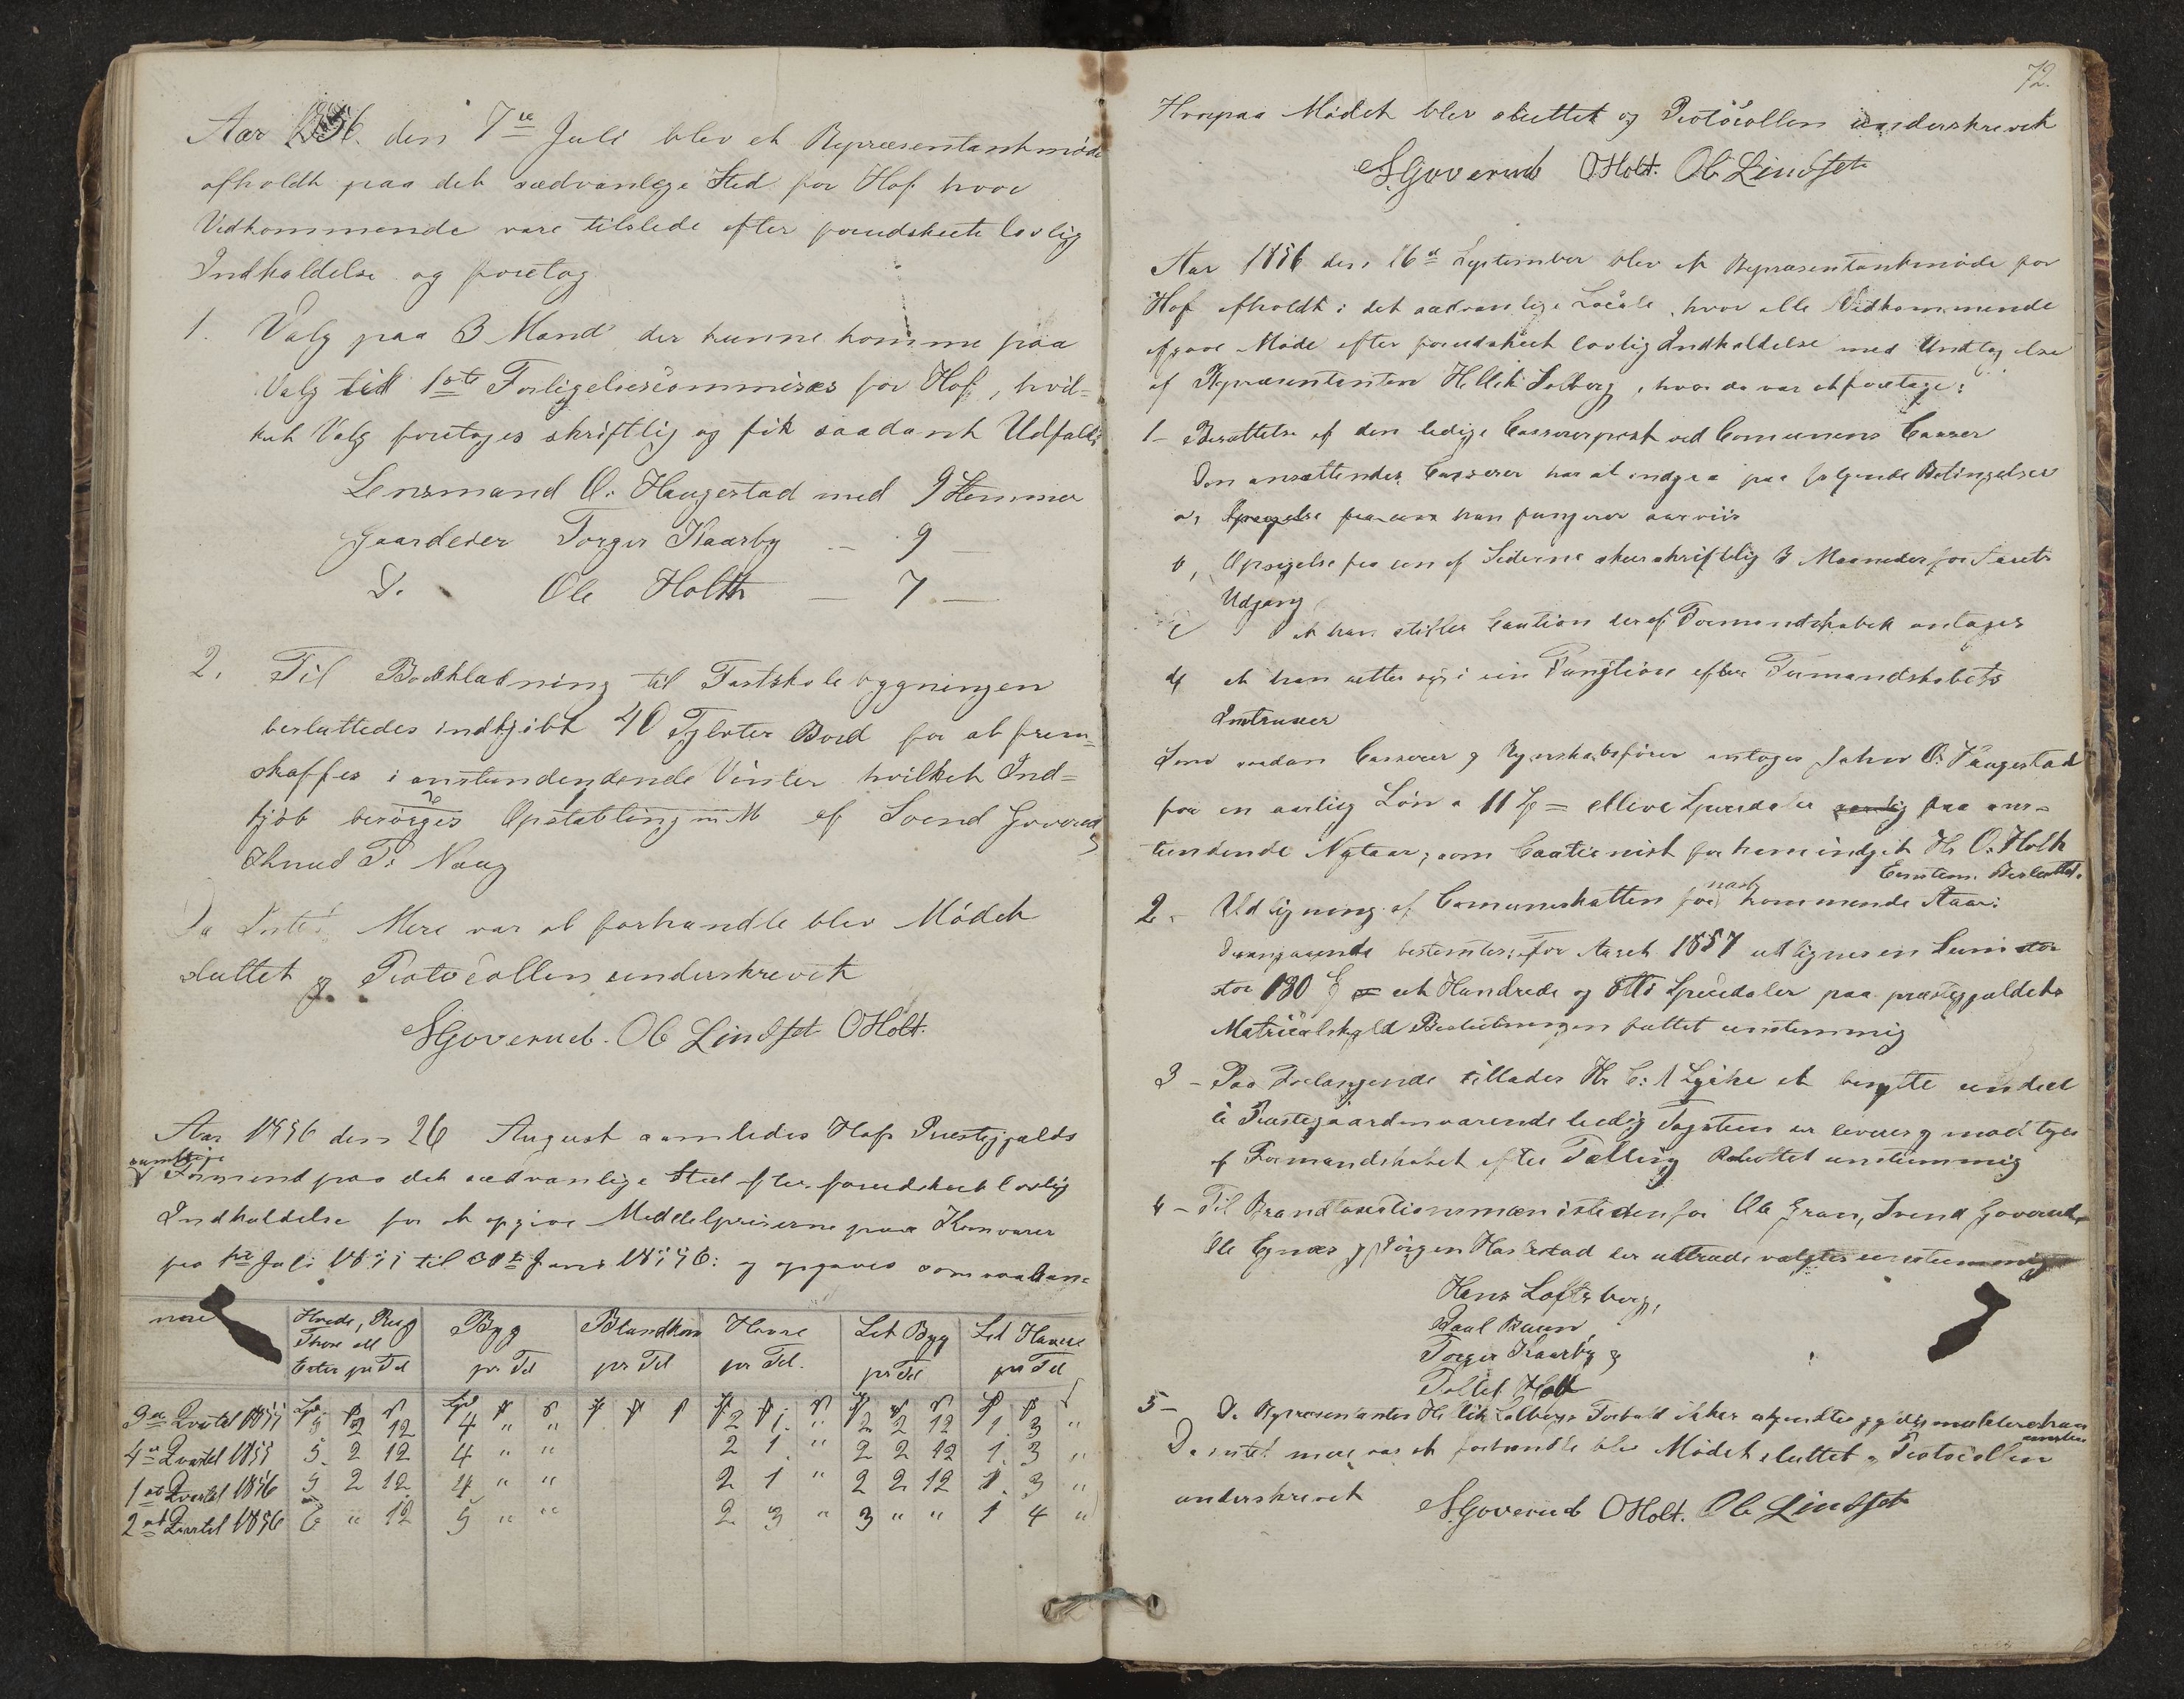 Aar 1856. den 7de Juli blev et Repræsentantmøde
afholdt paa det sædvanlige Sted for Hof hvor
Vedkommende vare tilstede efter forudskeete lovlig
Indkaldelse og foretog
1. Valg paa 3 Mænd der kunne komme paa
Valg till 1ste Forligelsescommisær for Hof, hvil-
ket Valg foretoges skriftlig og fik saadant Udfald:
Lensmand O. Haugestad med 9 Stemmer
Gaardeder Torger Kaarby — 9 —
D. Ole Holth — 7 —
2. Til Bordklædning til Fastskolebygningen
besluttedes indkjøbt 40 Tylvter Bord for at frem-
skaffes i anstundendende Vinter hvilket Ind-
kjøb besørges Opstabling m M af Svend Goverud
Knud P: Naug
Da Intet Mere var at forhandle blev Mødet
sluttet og Protocollen underskrevet
SGoverud. Ole Lindset OHolt.
Aar 1856 den 26 August samledes Hofs Præstegjelds
samtlige
Formænd paa det sædvanlige Sted efter forudskeet lovlig
Indkaldelse for at opgive Middelpriserne paa Kornvarer
fra 1ste Juli 1855 til 30te Juni 1856: og opgaves som saadan-
nne Hvede, Rug Byg Blandkorn Havre Let Byg Let Havre
Erter pr Td pr Td pr Td pr Td. pr Td pr Td
3de Qvartal 1855 5 2 12 4 " " 2 1 " 2 2 12 1 3 "
4de Qvartal 1855 5 2 12 4 " " 2 1 " 2 2 12 1 3 "
1ste Qvartal 1856 5 2 12 4 " " 2 1 " 2 2 12 1 3 "
2det Qvartal 1856 6 " 12 5 " " 2 3 " 3 " " 1 4 "
72.
Hvorpaa Mødet blev sluttet og Protocollen underskrevet
SGoverud OHolt. Ole Lindset
Aar 1856 den 16de September blev et Repræsentantmøde for
Hof afholdt i det sædvanlige Locale, hvor alle Vedkommende
afgave Møde efter forudskeet lovlig Indkaldelse med Undtagelse
af Repræsentanten H Solberg, hvor da var at foretage:
1- Besættelse af den ledige Casserer post ved Comunens Casser
Den ansættendes Casserer har at indgaa paa følgende Betingelser
a, han fungerer aarviis
b, Opsigelse fra een af Siderne skeer skriftlig 3 Maaneder før Aarets
Udgang
c at han stiller Caution der af Formandskabet antages
d at han retter sig i sin Fungtion efter Formandskabets
Intruxer
Som saadan Casserer og Regnskabsfører antoges Johan O. Haugestad
for en aarlig Løn a 11 = elleve Speciedaler fra ans-
tundende Nytaar, som Cautionist for ham indgik Hr O. Holth
Eenstem. Besluttet.
2- Udligning af Comuneskatten for næste kommende Aar:
Desangaaende bestemtes: For Aaret 1857 udlignes en Sum
stor 180 et Hundrede og Otti Speciedaler paa præstegjeldets
Matriculskyld Beslutningen fattet eenstemmig
3- Paa Forlangende tillades Hr C: Lyche at benytte en deel
à Præstegaarden værende ledig Tagsteen
af Formandskabet efter Tælling Besluttet eenstemmig
4- Til Brandtaxtionsmæn istedenfor Ole Gran, Svend Goverud
Ole Egnæs og Jørgen Haslestad der udtræde valgtes eenstemmig
Hans Loftsberg,
Paul Baun
Torger Kaarby &
Tollef Holt
5-
Da intet mere var at forhandle blev Mødet sluttet & Protocollen
underskrevet SGoverud OHolt. Ole Lindset